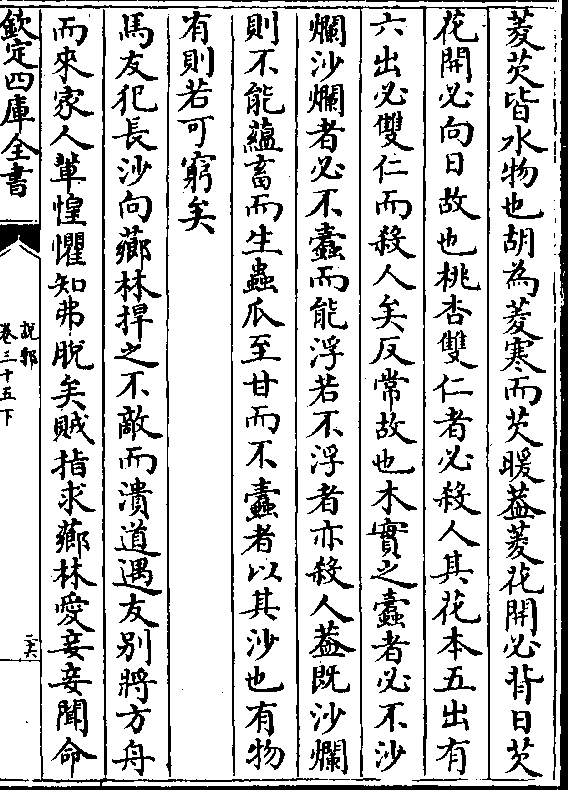 菱芡皆水物也胡為菱寒而芡暖葢菱花開必背日芡
花開必向日故也桃杏雙仁者必殺人其花本五出有
六出必雙仁而殺人矣反常故也木實之蠧者必不沙
爛沙爛者必不蠧而能浮若不浮者亦殺人葢既沙爛
則不能蘊畜而生蟲瓜至甘而不蠧者以其沙也有物
有則若可窮矣
馬友犯長沙向薌林捍之不敵而潰道遇友别將方舟
而來家人軰惶懼知弗脫矣賊指求薌林愛妾妾聞命
欽定四庫全書
說郛
卷三十五下
二六